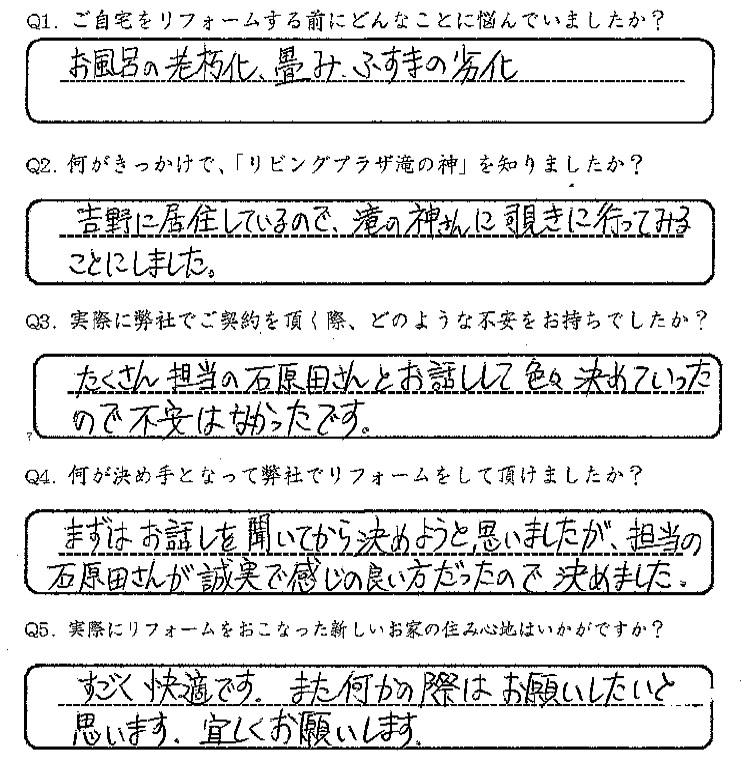 Q1. ご自宅をリフォームする前にどんなことに悩んでいましたか？
お風呂の老朽化、畳み、ふすまの劣化
Q2. 何がきっかけで、「リビングプラザ滝の神」を知りましたか？
吉野に居住しているので、滝の神さんに覗きに行ってみる
ことにしました。
Q3. 実際に弊社でご契約を頂く際、どのような不安をお持ちでしたか？
たくさん担当の石原田さんとお話しして色々決めていった
ので不安はなかったです。
Q4. 何が決め手となって弊社でリフォームをして頂けましたか？
まずはお話しを聞いてから決めようと思いましたが、担当の
石原田さんが誠実で感じの良い方だったので決めました。
Q5. 実際にリフォームをおこなった新しいお家の住み心地はいかがですか？
すごく快適です。また何かの際はお願いしたいと
思います。宜しくお願いします。